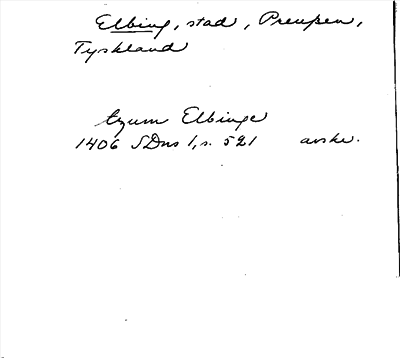 Elbing, stad, Preuszen,
Tyskland
tzum Elbinge
1406 SDns 1, s. 521 avskr.